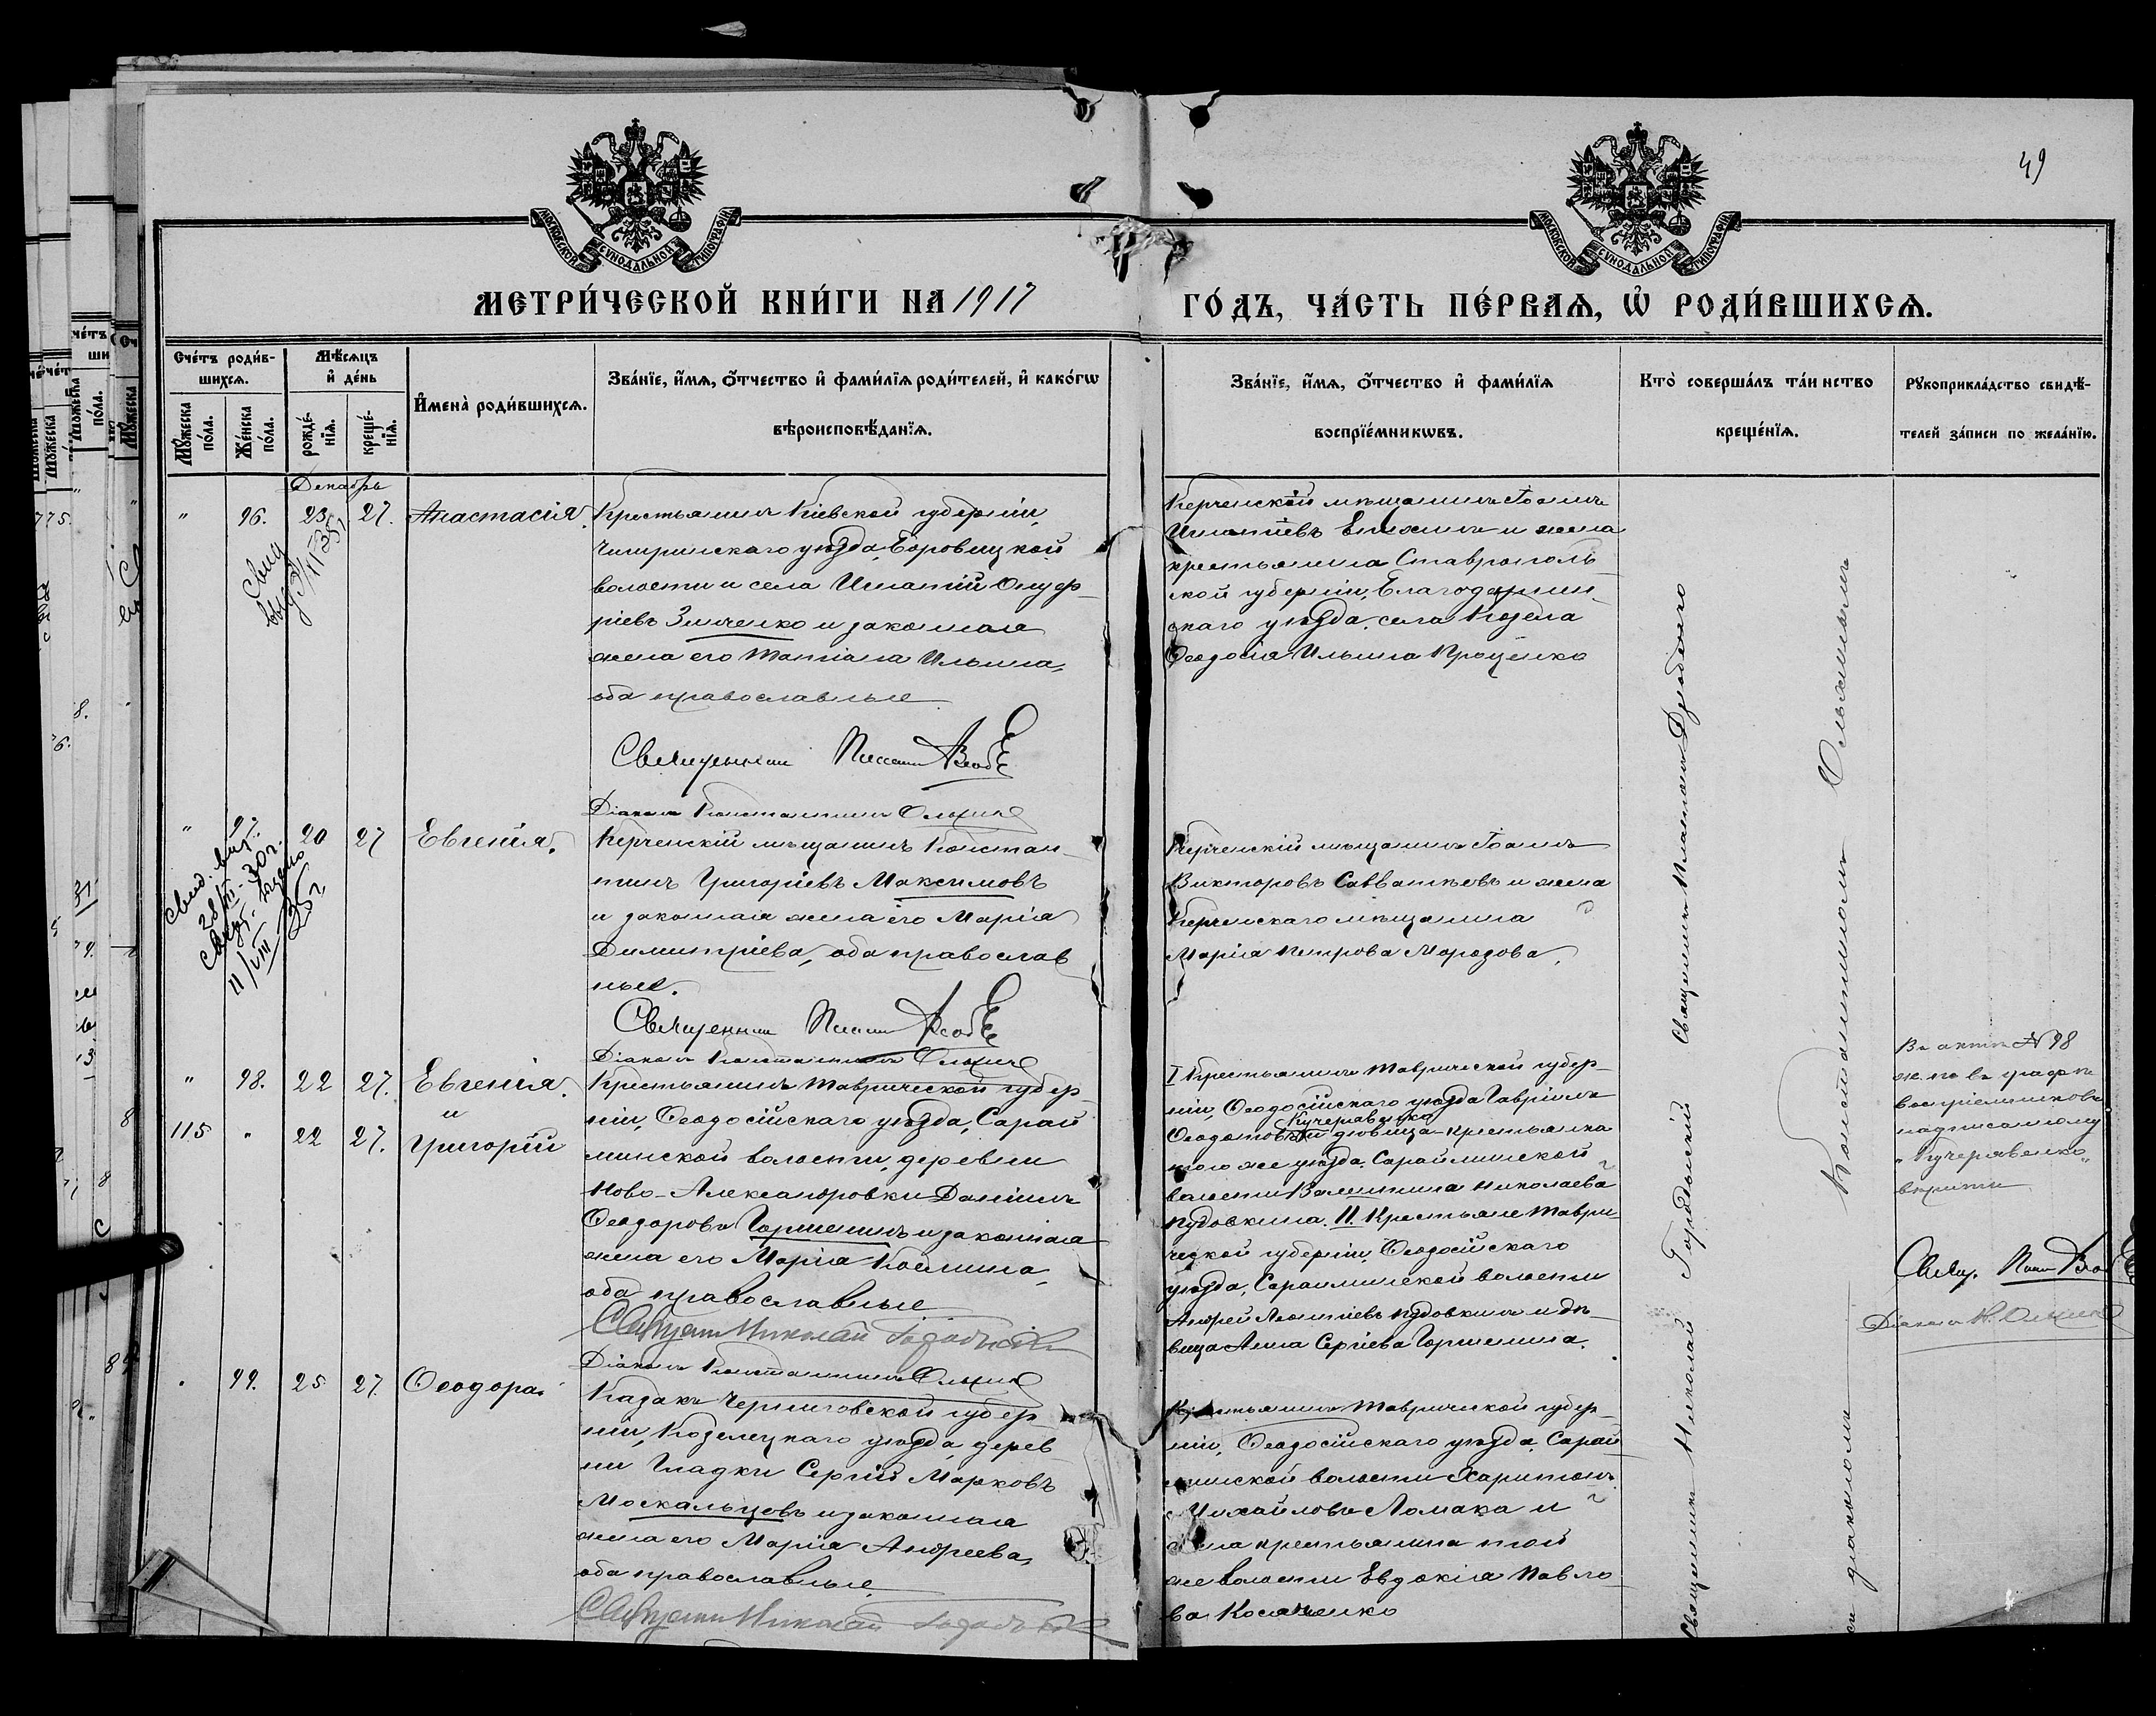 49
МОСКОВСКОЙ СѴНОДАЛЬНОЙ ТИПОГРАФІИ
МОСКОВСКОЙ СѴНОДАЛЬНОЙ ТИПОГРАФІИ
МЕТРИ́ЧЕСКОЙ КНИ́ГИ НА 1917
ГО́ДЪ, ЧА́СТЬ ПЕ́РВАѦ, Ѡ҆ РОДИ́ВШИХСѦ.
Сче́тъ роди́в-
шихсѧ.
Мѣ́сѧцъ
и҆ де́нь
Мꙋ́жеска
по́ла.
Же́нска
по́ла.
рожде́-
нїѧ.
креще́-
нїѧ.
И҆мена̀ роди́вшихсѧ.
Зва́нїе, и҆́мѧ, ѻ҆́тчество и҆ фами́лїѧ роди́телей, и҆ како́гѡ
вѣроисповѣ́данїѧ.
Зва́нїе, и҆́мѧ, ѻ҆́тчество и҆ фами́лїѧ
воспрїе́мникѡвъ.
Кто̀ соверша́лъ та́инство
креще́нїѧ.
Рꙋкоприкла́дство свидѣ́-
телей за́писи по жела́нїю.
Декабрь
" 96. 23 27. Анастасія.
Свид
выд
Крестьянинъ Кіевской губерніи,
Чигиринскаго уѣзда, Боровицкой
волости и села Игнатій Онуф-
ріевъ Зинченко и законная
жена его Татіана Ильина,
оба православные
Священник
Діаконъ Константинъ
Керченскій мѣщанинъ Іоаннъ
Игнатіевъ и жена
крестьянина Ставрополь-
ской губерніи, Благодарин-
скаго уѣзда, села
Ѳеодосія Ильина Проценко
" 97. 20 27 Евгенія.
Свид. выд.
28/XI-30 г.
11/VIII 35 г.
Керченскій мѣщанинъ Констан-
тинъ Григоріевъ Максимовъ
и законная жена его Марія
Димитріева, оба православ
ные.
Священник
Діаконъ Константинъ
Керченскій мѣщанинъ Іоаннъ
Викторовъ Савватѣевъ и жена
Керченскаго мѣщанина
Марія Петрова Морозова.
" 98. 22 27. Евгенія.
и
115 " 22 27. Григорій
Крестьянинъ Таврической губер-
ніи, Ѳеодосійскаго уѣзда, Сарай
минской волости, деревни
Ново-Александровки Даніилъ
Ѳеодоровъ Горшенинъ и законная
жена его Марія Космина,
оба православные
Священник Николай
Діаконъ Константинъ
I Крестьянинъ Таврической губер-
ніи, Ѳеодосійскаго уѣзда Гавріилъ
Кучерявенко
Ѳеодотовъ и дѣвица-крестьянка
того же уѣзда, Сарайминской
волости Валентина Николаева
Пудовкина. II. Крестьяне Таври-
ческой губерніи, Ѳеодосійскаго
уѣзда, Сарайминской волости
Андрей Леонтіевъ Пудовкинъ и дѣ-
вица Анна Сергіева Горшенина.
Въ актѣ № 98
въ графѣ
воспріемниковъ
надписанному
"Кучерявенко"
вѣрить
Свящ.
Діаконъ К.
" 99. 25 27. Ѳеодора.
Казакъ Черниговской губер-
ніи, Козелецкаго уѣзда, дерев
ни Гладки Сергій Марковъ
Москальцовъ и законная
жена его Марія Андреева,
оба православные.
Священник Николай
Крестьянинъ Таврической губер-
ніи, Ѳеодосійскаго уѣзда, Сарай
минской волости Харитонъ
Михайловъ Ломака и
жена крестьянина той
же волости Евдокія Павло-
ва Косяченко
Священники Николай Священникъ Платонъ
діакономъ Константиномъ